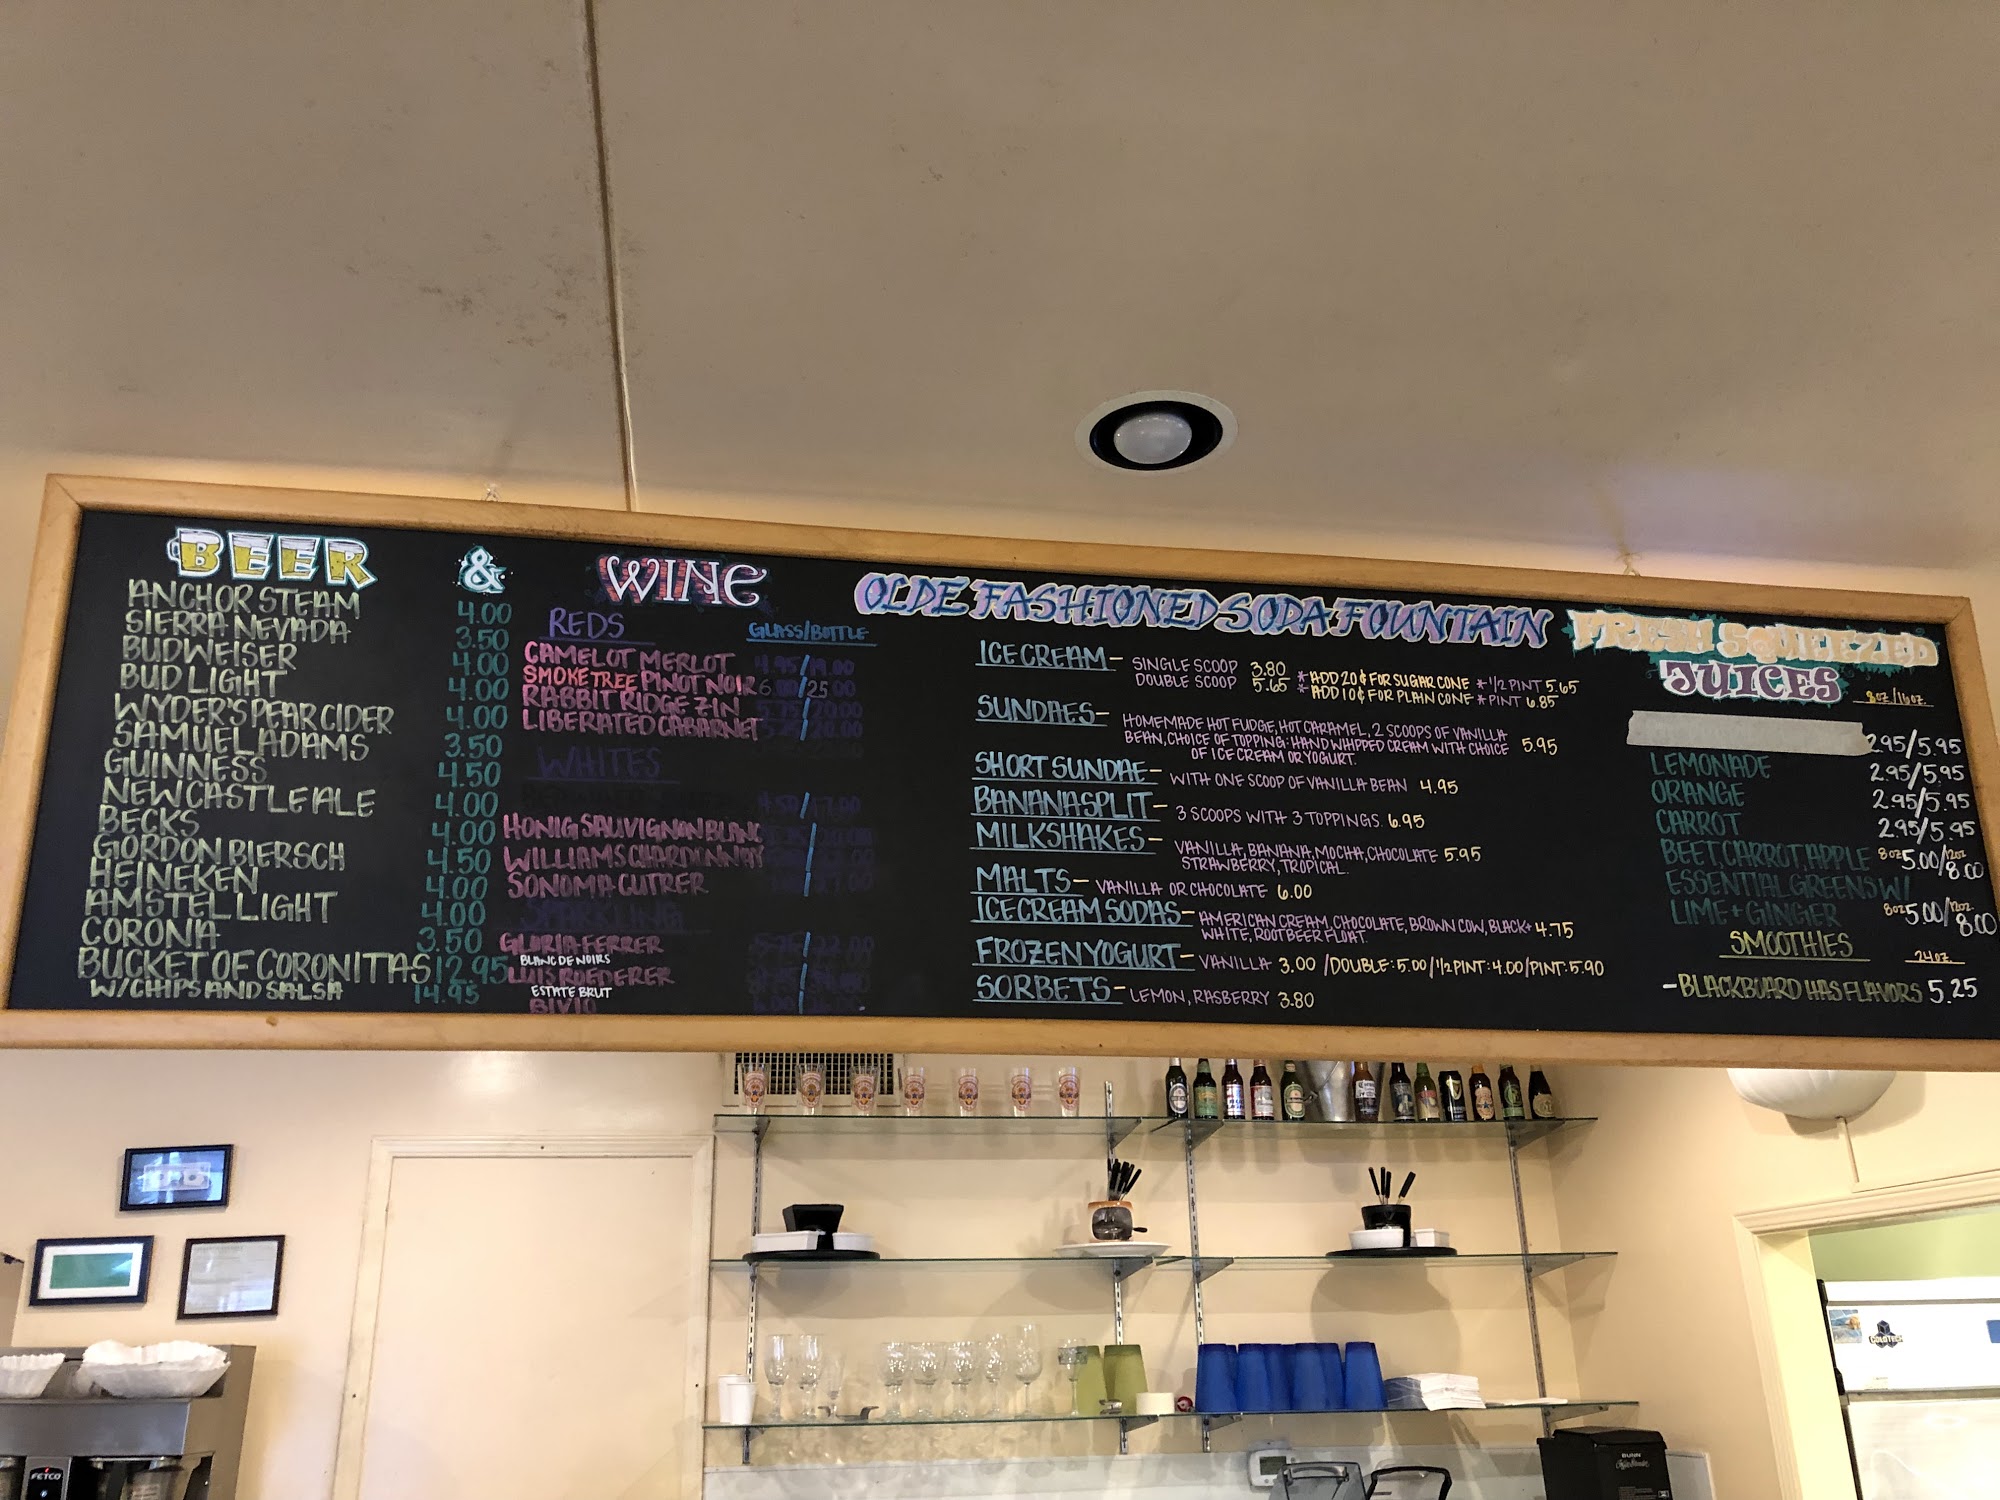 BEER & WINE
ANCHOR STEAM 4.00
SIERRA NEVADA 3.50
BUDWEISER 4.00
BUD LIGHT 4.00
WYDER'S PEAR CIDER 4.00
SAMUEL ADAMS 3.50
GUINNESS 4.50
NEWCASTLE ALE 4.00
BECKS 4.00
GORDON BIERSCH 4.50
HEINEKEN 4.00
AMSTEL LIGHT 4.00
CORONA 3.50
BUCKET OF CORONITAS 12.95
W/CHIPS AND SALSA 14.95
REDS GLASS/BOTTLE
CAMELOT MERLOT 4.95/19.00
SMOKE TREE PINOT NOIR 6.00/25.00
RABBIT RIDGE ZIN 5.75/20.00
LIBERATED CABARNET /20.00
WHITES
4.50/17.00
HONIG SAUVIGNON BLANC
WILLIAMS CHARDONNAY
SONOMA CUTRER
SPARKLING
GLORIA FERRER
BLANC DE NOIRS
LUIS ROEDERER
ESTATE BRUT
BIVIO
OLDE FASHIONED SODA FOUNTAIN
ICE CREAM - SINGLE SCOOP 3.80 *ADD 20¢ FOR SUGAR CONE *1/2 PINT 5.65
DOUBLE SCOOP 5.65 *ADD 10¢ FOR PLAIN CONE *PINT 6.85
SUNDAES - HOMEMADE HOT FUDGE, HOT CARAMEL, 2 SCOOPS OF VANILLA
BEAN, CHOICE OF TOPPING: HAND WHIPPED CREAM WITH CHOICE 5.95
OF ICE CREAM OR YOGURT.
SHORT SUNDAE - WITH ONE SCOOP OF VANILLA BEAN 4.95
BANANA SPLIT - 3 SCOOPS WITH 3 TOPPINGS. 6.95
MILKSHAKES - VANILLA, BANANA, MOCHA, CHOCOLATE 5.95
STRAWBERRY, TROPICAL.
MALTS - VANILLA OR CHOCOLATE 6.00
ICE CREAM SODAS - AMERICAN CREAM, CHOCOLATE, BROWN COW, BLACK + 4.75
WHITE, ROOT BEER FLOAT.
FROZEN YOGURT - VANILLA 3.00 /DOUBLE: 5.00/1/2 PINT: 4.00/PINT: 5.90
SORBETS - LEMON, RASBERRY 3.80
FRESH SQUEEZED
JUICES 8oz/16oz.
2.95/5.95
LEMONADE 2.95/5.95
ORANGE 2.95/5.95
CARROT 2.95/5.95
BEET, CARROT, APPLE 8oz 5.00/12oz. 8.00
ESSENTIAL GREENS W/
LIME + GINGER 8oz 5.00/12oz. 8.00
SMOOTHIES 24oz.
- BLACKBOARD HAS FLAVORS 5.25
FETCO
COLDTECH
BUNN